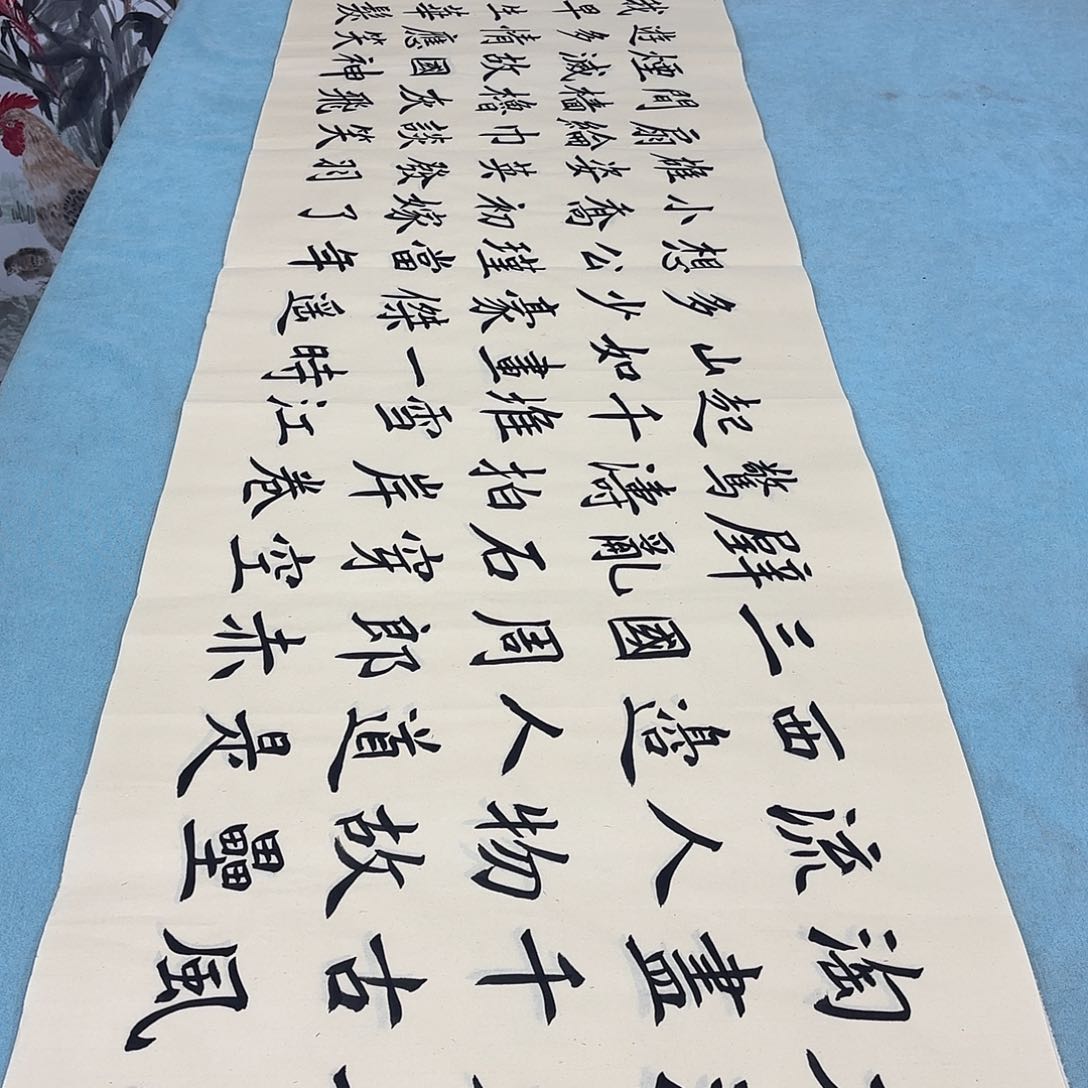 淘盡千古風
流人物故壘
西邊人道是
三國周郎赤
壁亂石穿空
驚濤拍岸卷
起千堆雪江
山如畫一時
多少豪傑遥
想公瑾當年
小喬初嫁了
雄姿英發羽
扇綸巾談笑
間檣櫓灰飛
煙滅故國神
遊多情應笑
我早生華髮